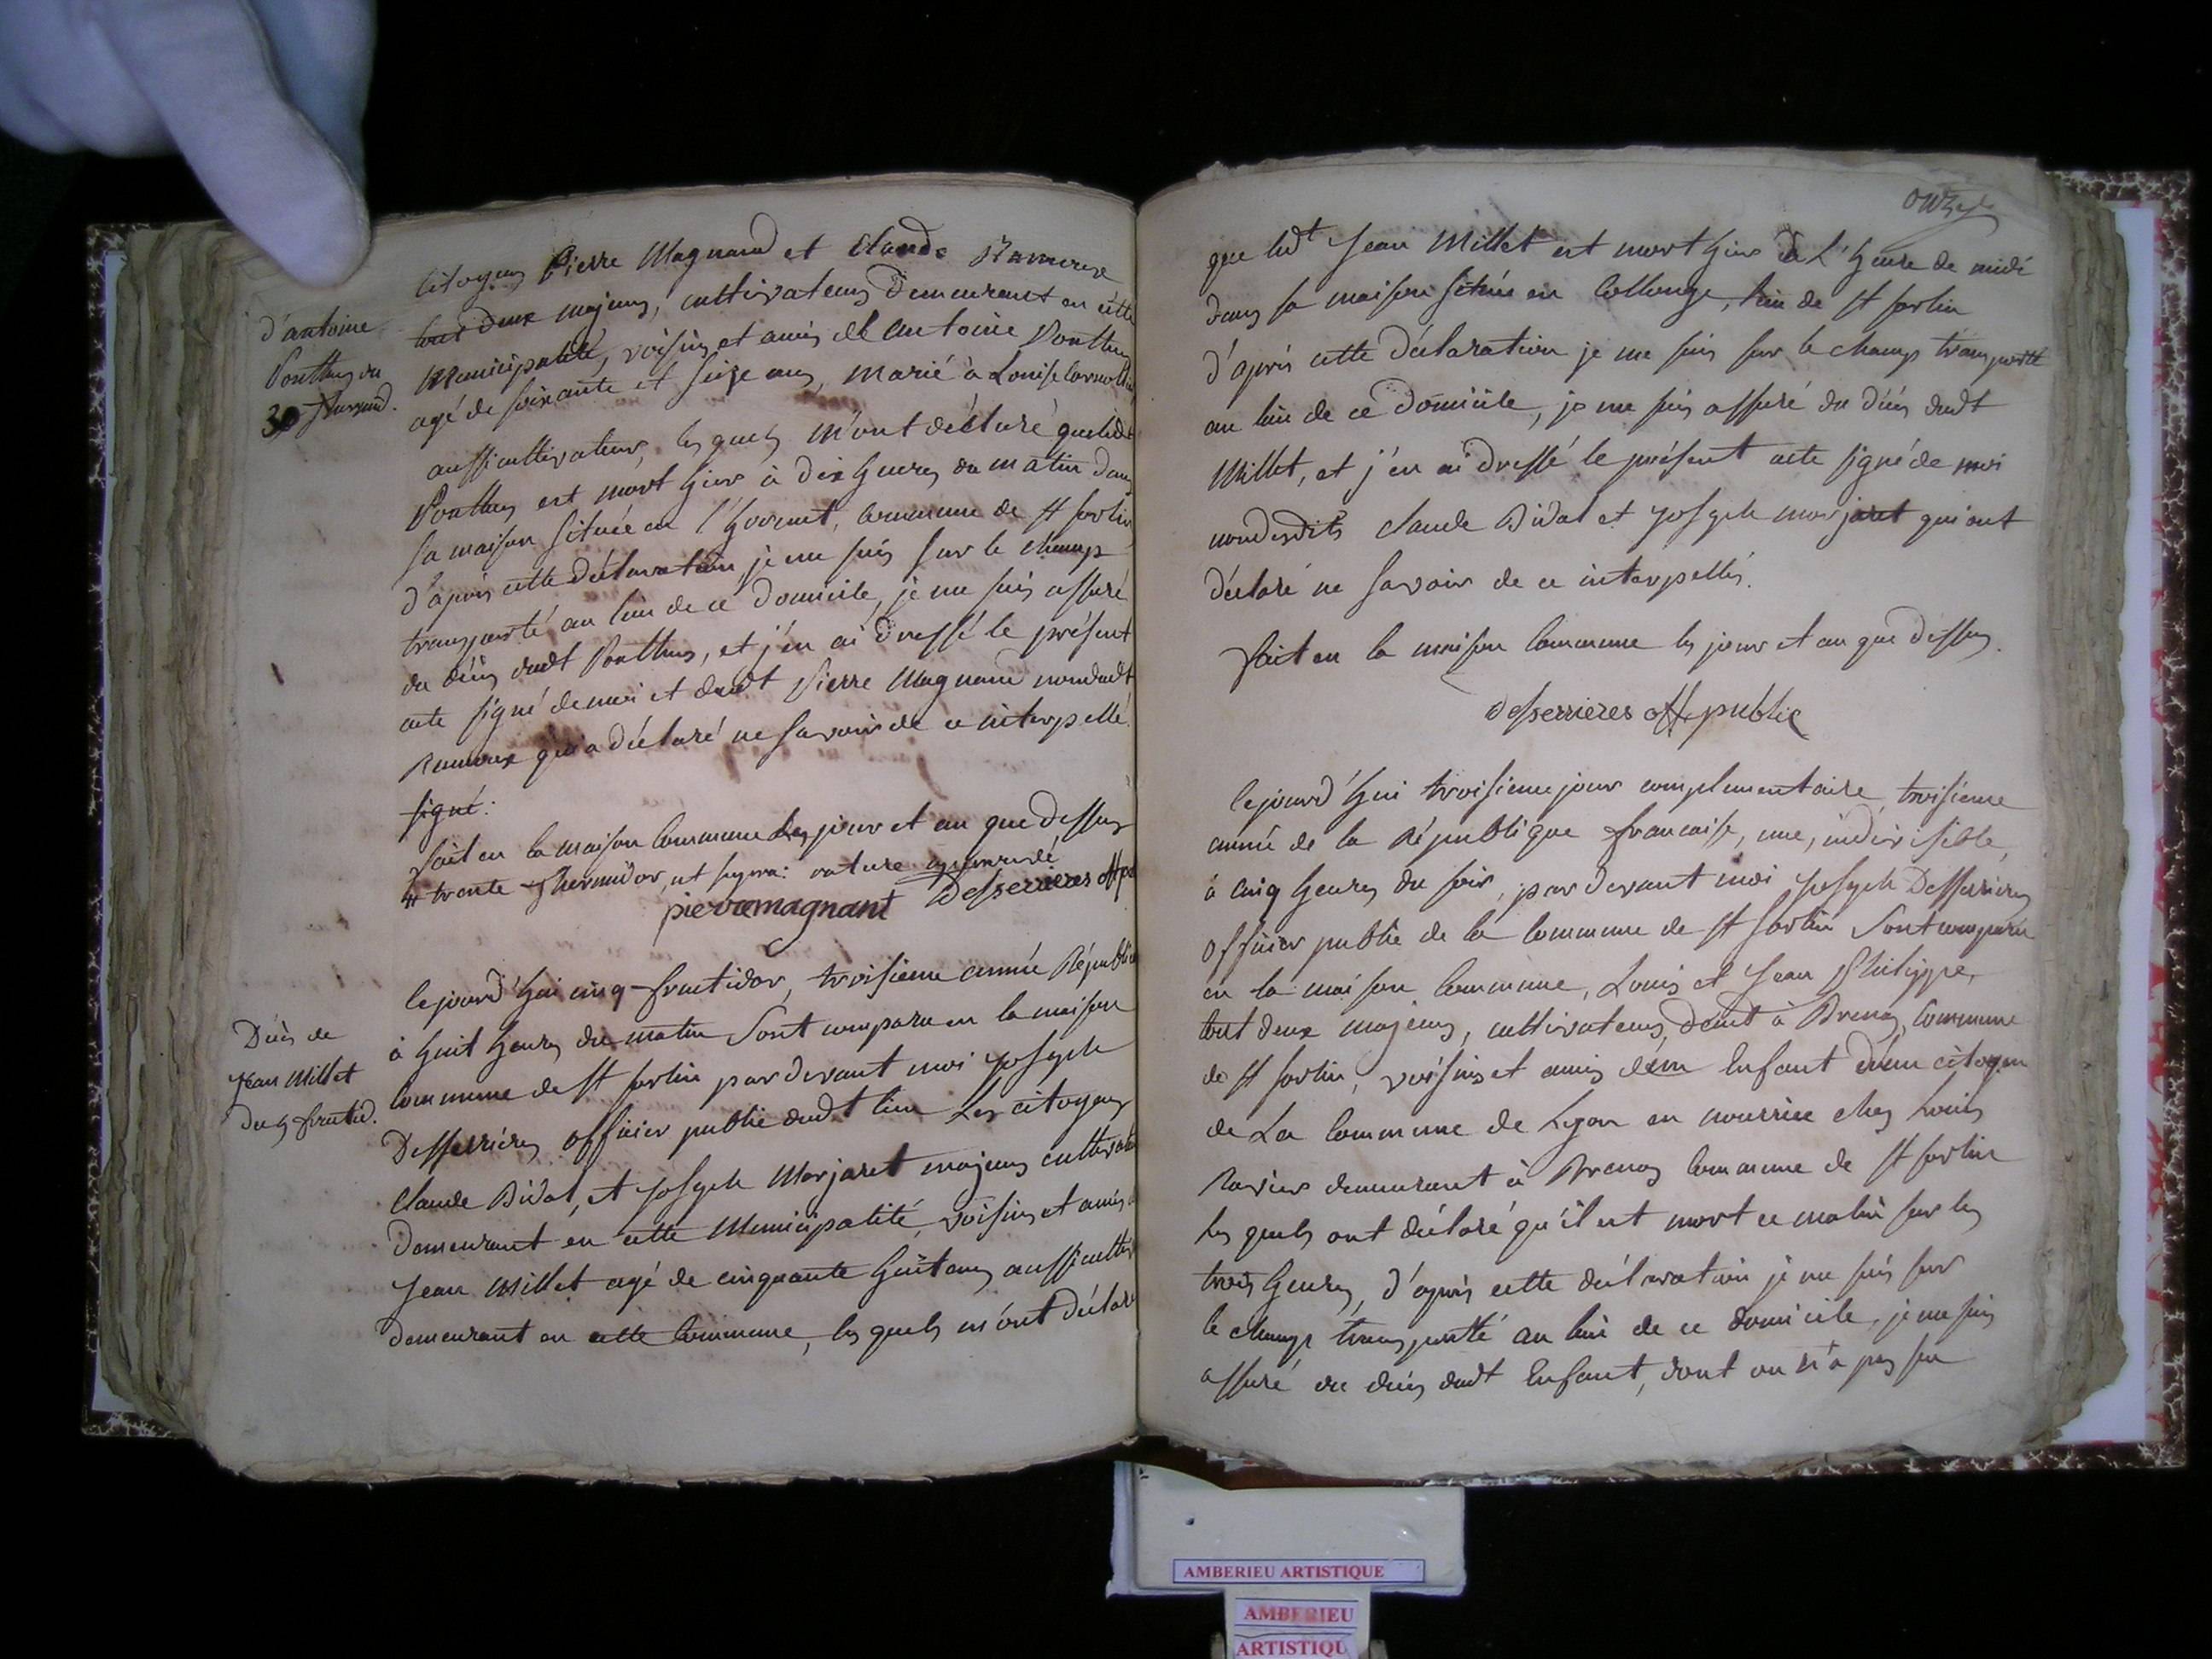 d'antoine
Ponthus du
30 thermid.
Citoyens Pierre Magnand et Claude Rameux
tous deux majeurs, cultivateurs demeurant en cette
Municipalité, voisins et amis de antoine Ponthus
agé de soixante et seize ans, marié à Louise
aussi cultivateur, les quels m'ont déclaré que ledt
Ponthus est mort hier à dix heures du matin dans
sa maison située en l'horment, commune de st sorlin
d'après cette déclaration, je me suis sur le champ
transporté au lieu de ce domicile, je me suis assuré
du décès dudt Ponthus, et j'en ai dressé le présent
acte signé de moi et dudt Pierre Magnand non dudt
Rameux qui a déclaré ne savoir de ce interpellé
signé:
fait en la maison commune les jour et an que dessus
trente thermidor, ut supra: rature approuvé
pierre magnant Desserrieres off. p
Décès de
Jean Millet
du 5 fructid.
Cejourd'hui cinq fructidor, troisieme année Républic
à huit heures du matin sont comparu en la maison
commune de st sorlin par devant moi Joseph
Desserrieres officier public dudt lieu Les citoyens
Claude Bidal, et Joseph Marjaret majeurs cultivate
demeurant en cette Municipalité, voisins et amis
Jean Millet agé de cinquante huit ans, aussi cultiv
demeurant en cette commune, les quels m'ont déclaré
onze
que ledt Jean Millet est mort hier à l'heure de midi
dans sa maison située en Collonge, lieu de st sorlin
d'après cette déclaration je me suis sur le champ transporté
au lieu de ce domicile, je me suis assuré du décès dudt
Millet, et j'en ai dressé le présent acte signé de moi
non desdits claude Bidal et Joseph marjaret qui ont
déclaré ne savoir de ce interpellés.
fait en la maison commune les jour et an que dessus.
Desserrieres off. public
Cejourd'hui troisieme jour complementaire, troisieme
année de la République francaise, une, indivisible,
à cinq heures du soir, par devant moi Joseph Desserrieres
officier public de la commune de st sorlin sont comparu
en la maison commune, Louis et Jean Philippe,
tout deux majeurs, cultivateurs, demt à Brenas, commune
de st sorlin, voisins et amis d'un Enfant d'un citoyen
de La commune de Lyon en nourrice chez Louis
Ravier demeurant à Brenas commune de st sorlin
les quels ont déclaré qu'il est mort ce matin sur les
trois heures, d'après cette déclaration je me suis sur
le champ transporté au lieu de ce domicile, je me suis
assuré du décès dudt Enfant, dont on n'a pas su
AMBERIEU ARTISTIQUE
AMBERIEU
ARTISTIQU